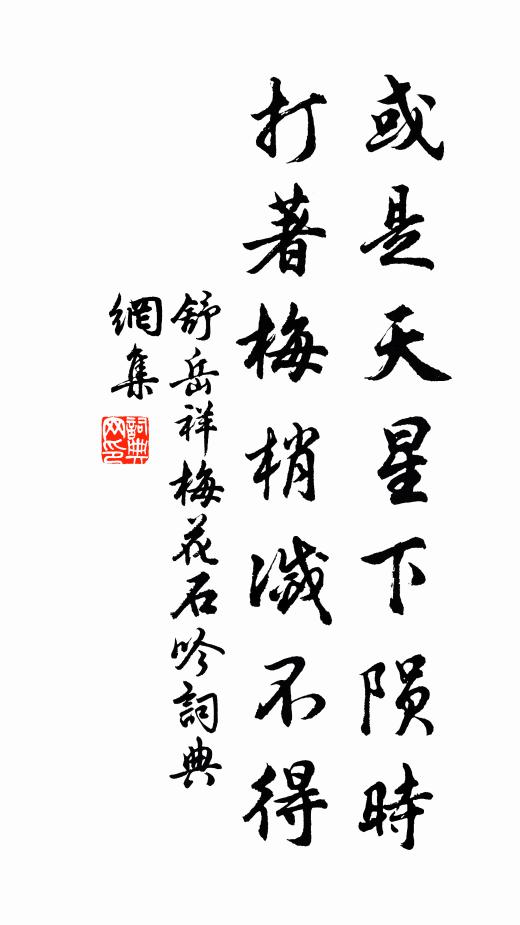 或是天星下陨時
打著梅梢滅不得
舒岳祥梅花石吟詞典
網集
詞典
网印